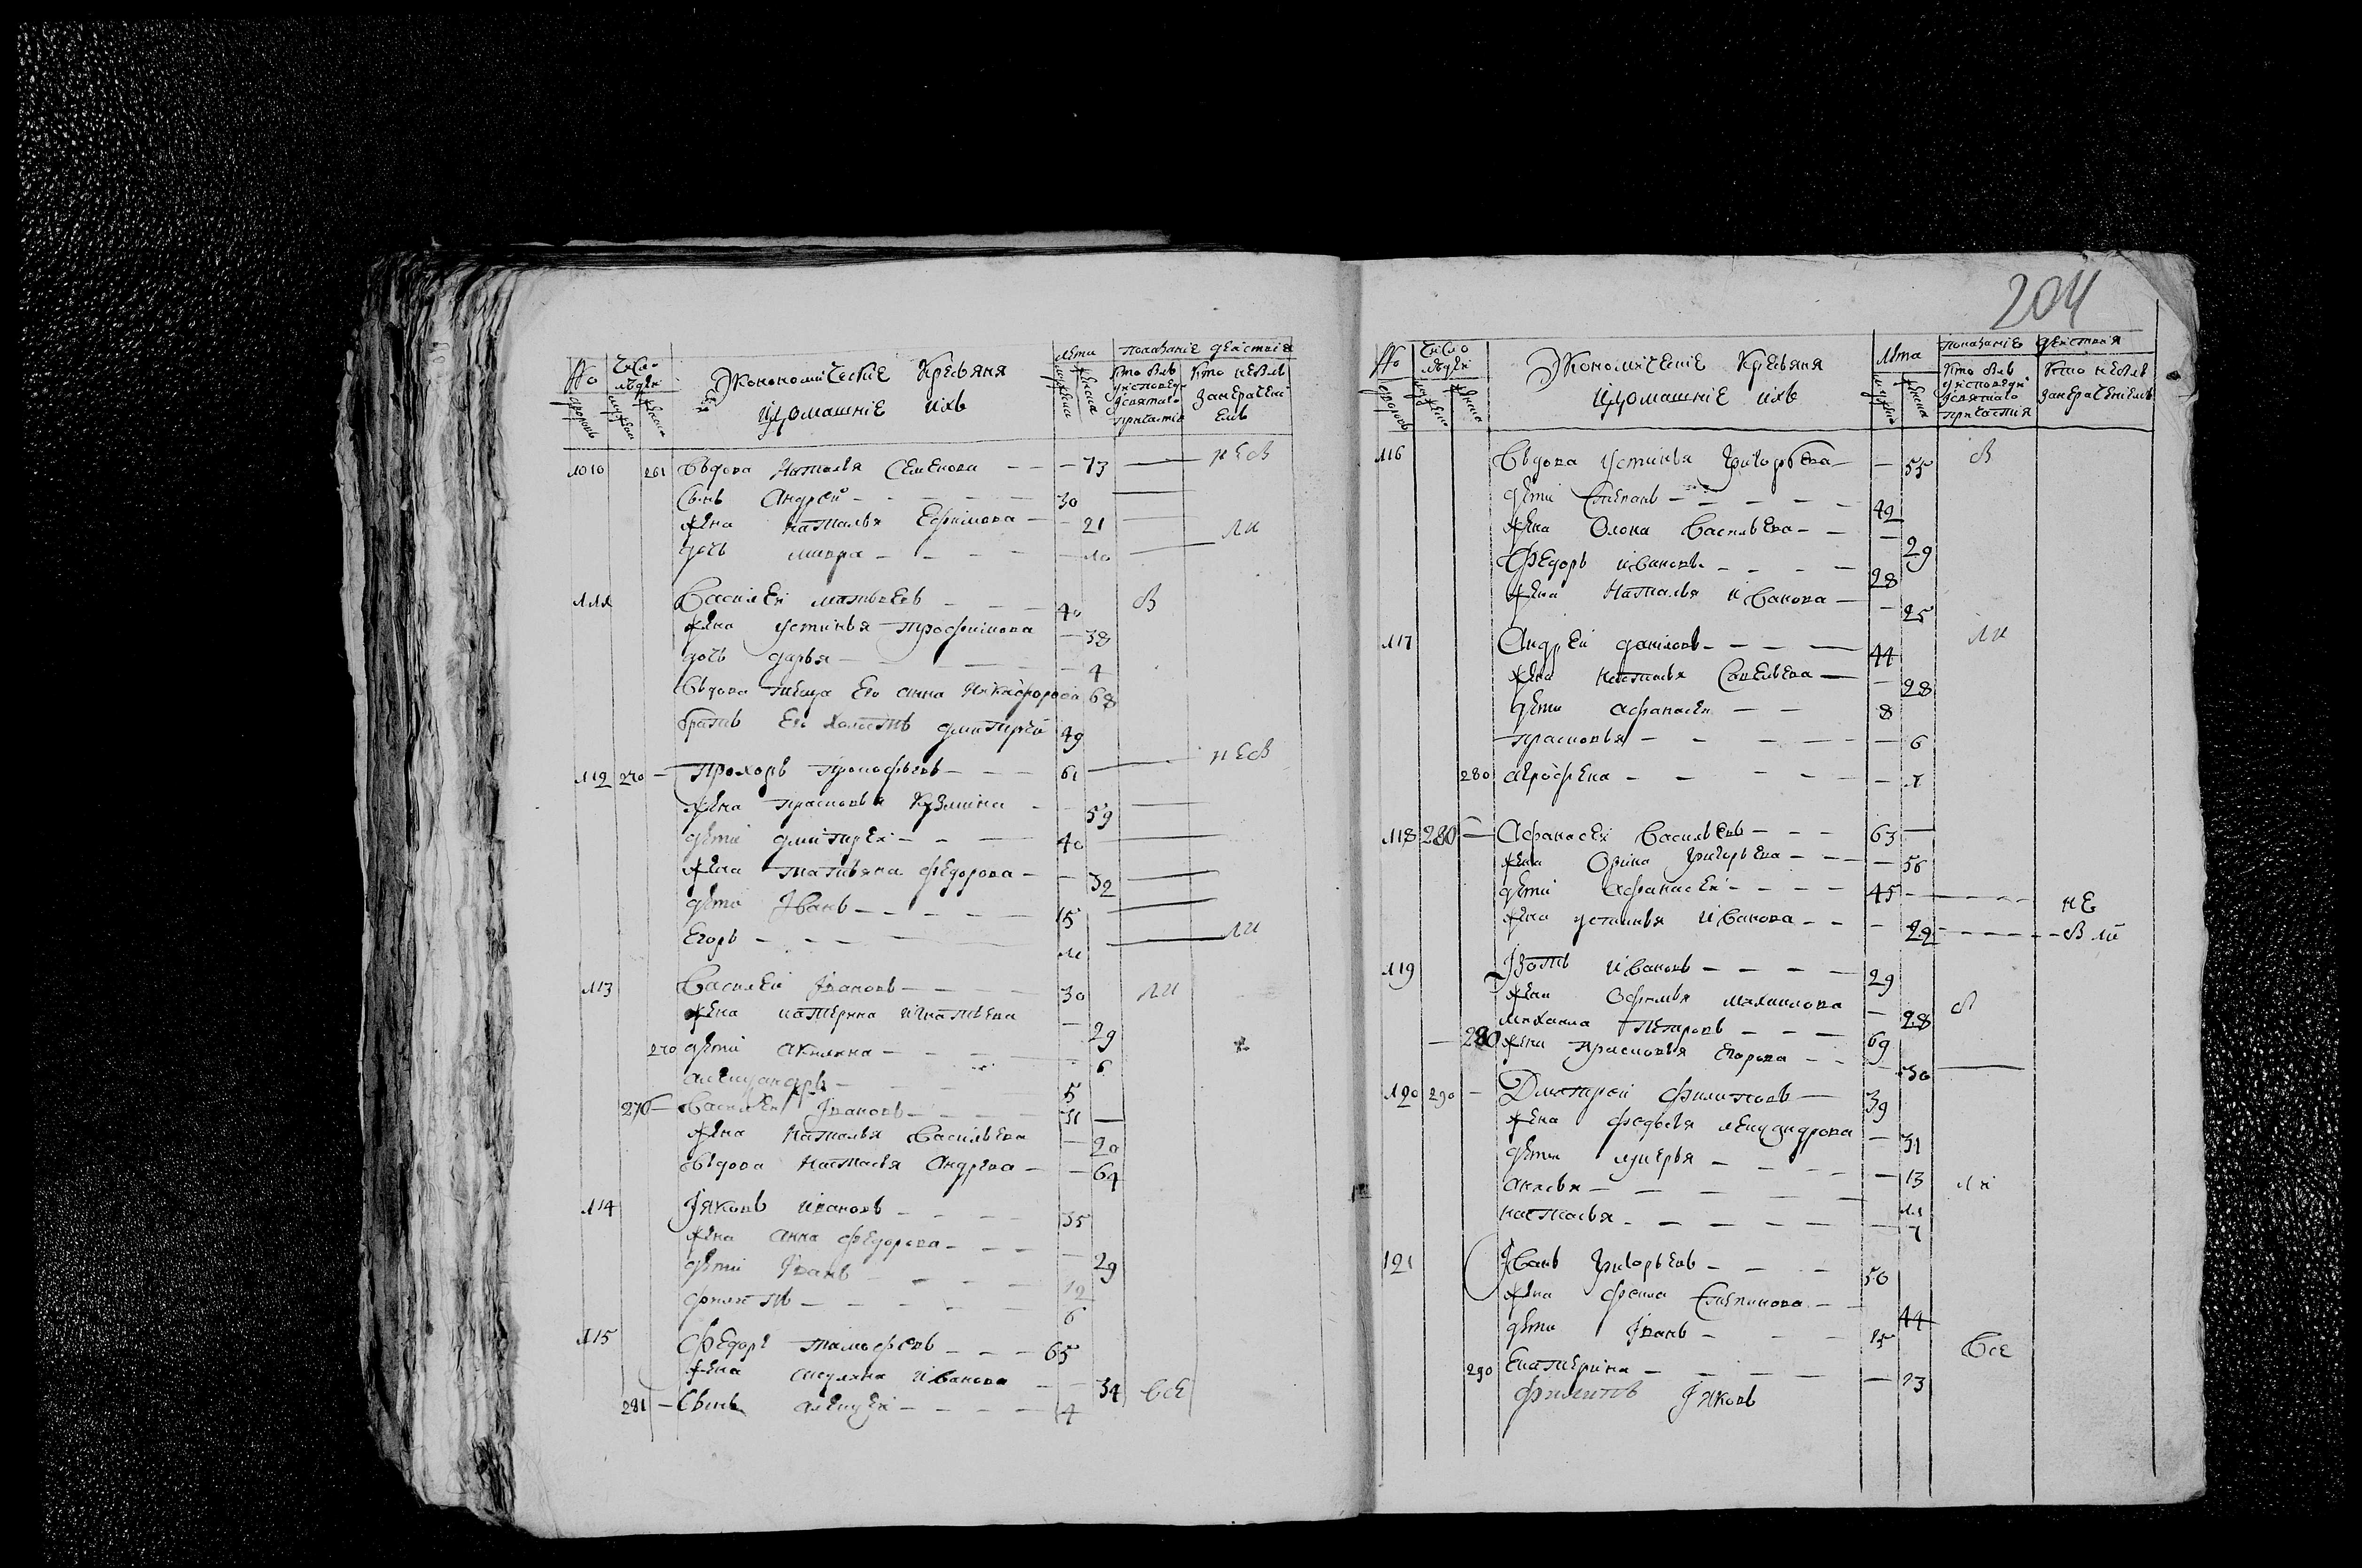 № Число людей Экономическіе Крестьяня Лета показаніе действія
дворовъ мужеска женска И домашніе ихъ мужеска женска Кто былъ у исповеди и святаго причастія Кто небылъ за нерачениемъ
1010 261 Вдова Наталья Семенова 73 не в
Сынъ Андрей 30
жена наталья Ефимова 21 ли
дочь мавра 10
111 Василей матвеевъ 40 в
жена устинья трофимова 38
дочь дарья 4
Вдова теща Его анна Никифорова 68
братъ Ег холостъ дмитрей 49
112 270 Прохоръ 61 не в
жена прасковья Кузмина 59
дети дмитрей 40
жена татьяна федорова 32
дети Іванъ 15
Егоръ 11 ли
113 Василей Івановъ 30 ли
жена катерина игнатьева 29
270 дети акилина 6
александръ 5
276 Василей Івановъ 31
жена Наталья Васильева 20
вдова настасья Андрева 64
114 Іяковъ ивановъ 35
жена анна федорова 29
дети Іванъ 12
филипъ 6
115 Федоръ тимофеевъ 65
жена акулина иванова 34 все
281 Сынъ алексей 4
204
№ Число людей Экономическіе Крестьяня Лета показаніе действия
дворовъ мужеска женска И домашніе ихъ мужеска женска Кто былъ у исповеди и святаго причастия Кто не былъ за нерачениемъ
116 Вдова устинья григорьева 55 в
дети степанъ 42
жена Олона Васильева 29
Федоръ ивановъ 28
жена Наталья иванова 25
117 Андрей даниловъ 44 ли
жена наталья Савельева 28
дети афанасей 8
прасковья 6
280 аграфена 1
118 280 Афанасей Васильевъ 63
жена Орина григорьева 56
дети афанасей 45 не
жена устинья иванова 22 в ли
119 Ізотъ ивановъ 29
жена Офимья михаилова 28 в
михаила Петровъ 69
280 жена прасковья Егорова 50
120 290 Дмитрей филиповъ 39
жена федосья лександрова 31
дети лукерья 13 ли
анисья 11
настасья 7
121 Іванъ григорьевъ 50
жена фекла степанова 44
дети Іванъ 15 все
290 Екатерина 23
филиповъ Іяковъ